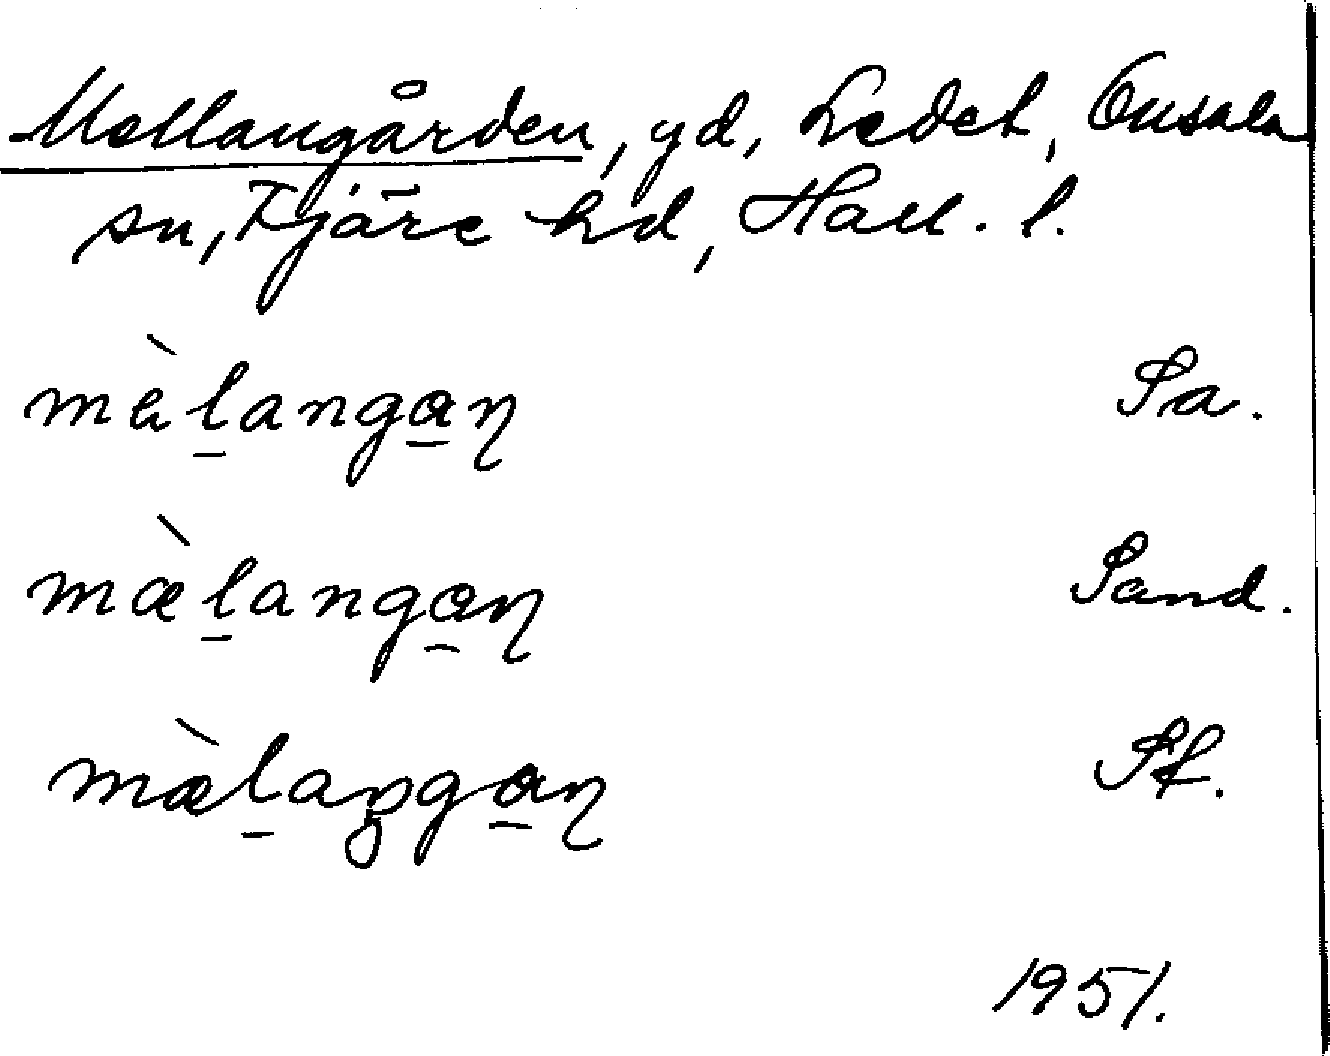 Mellangården, gd, Ledet, Onsala
sn, Fjäre hd, Hall. l.
mèl̠anga̠ɳ Sa.
mæ̀l̠anga̠ɳ Sand.
mæ̀l̠aŋga̠ɳ Sk.
1951.